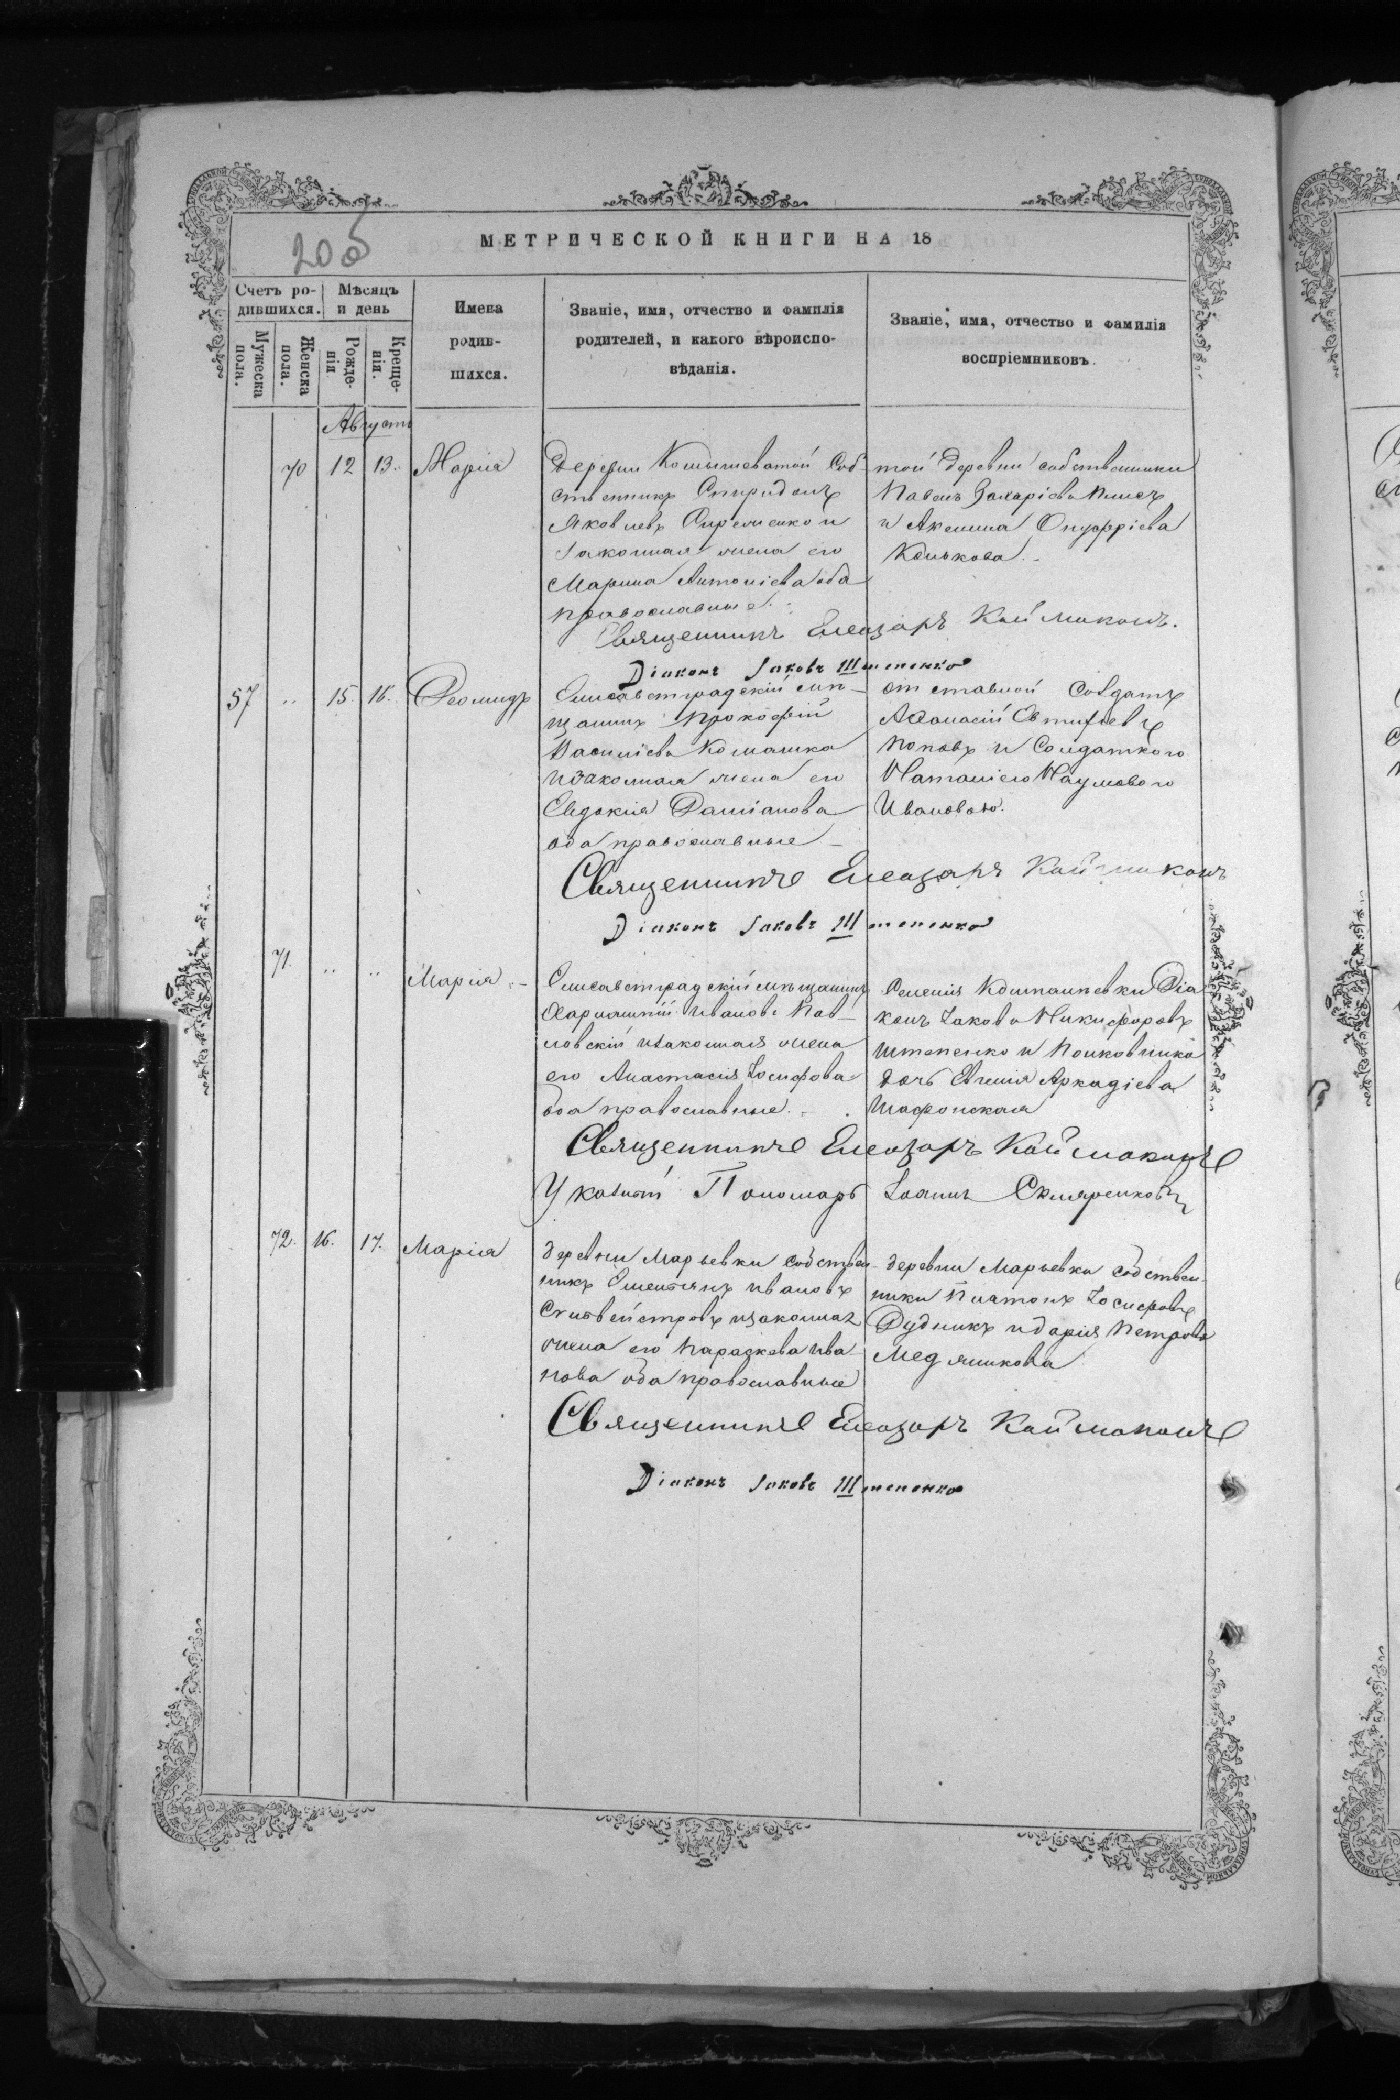 20об
МЕТРИЧЕСКОЙ КНИГИ НА 18
Счетъ ро-
дившихся.
Мѣсяцъ
и день
Мужеска
пола.
Женска
пола.
Рожде-
нія
Креще-
нія.
Имена
родив-
шихся.
Званіе, имя, отчество и фамилія
родителей, и какого вѣроиспо-
вѣданія.
Званіе, имя, отчество и фамилія
воспріемниковъ.
Августъ
70 12 13. Марія
Деревни Камышеватой Соб-
ственникъ Спиридонъ
Яковлевъ и
законная жена его
Марина Антоніева оба
православные.
той деревни собственники
Павелъ Захаріевъ
и Акелина Онуфріева
Конькова.
Священникъ Елеазаръ Каймаканъ.
Діаконъ Іаковъ Штепенко
57 " 15. 16. Леонидъ
Елисаветградскій мѣ-
щанинъ Прокофій
Василіевъ Комашко
и законная жена его
Евдокія Даміанова
оба православные
отставной Солдатъ
Афанасій Евтифіевъ
Поповъ и Солдаткою
Наталіею Наумовою
Ивановою.
Священникъ Елеазаръ Каймаканъ
Діаконъ Іаковъ Штепенко
71. " " Марія
Елисаветградскій мѣщанинъ
Харлампій Ивановъ Пав-
ловскій и законная жена
его Анастасія Іосифова
оба православные.
Селенія Компанѣевки Діа
конъ Іаковъ Никифоровъ
Штепенко и Полковника
дочь Евгенія Аркадіева
Шафонская
Священникъ Елеазаръ Каймаканъ
Указный Пономарь Іоаннъ Скляренковъ
72. 16. 17. Марія
деревни Марьевки собствен-
никъ Емеліянъ Ивановъ
Сильвейстровъ и законная
жена его Параскева Ива
нова оба православные
деревни Марьевки собствен-
ники Платонъ Іосифовъ
Дудникъ и Дарія Петрова
Медяникова
Священникъ Елеазаръ Каймаканъ
Діаконъ Іаковъ Штепенко